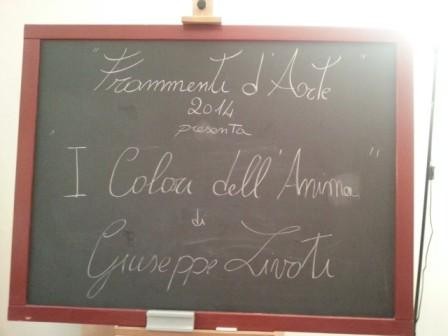 "Frammenti d'Arte"
2014
presenta
"I Colori dell'Anima"
di
Giuseppe Livoti